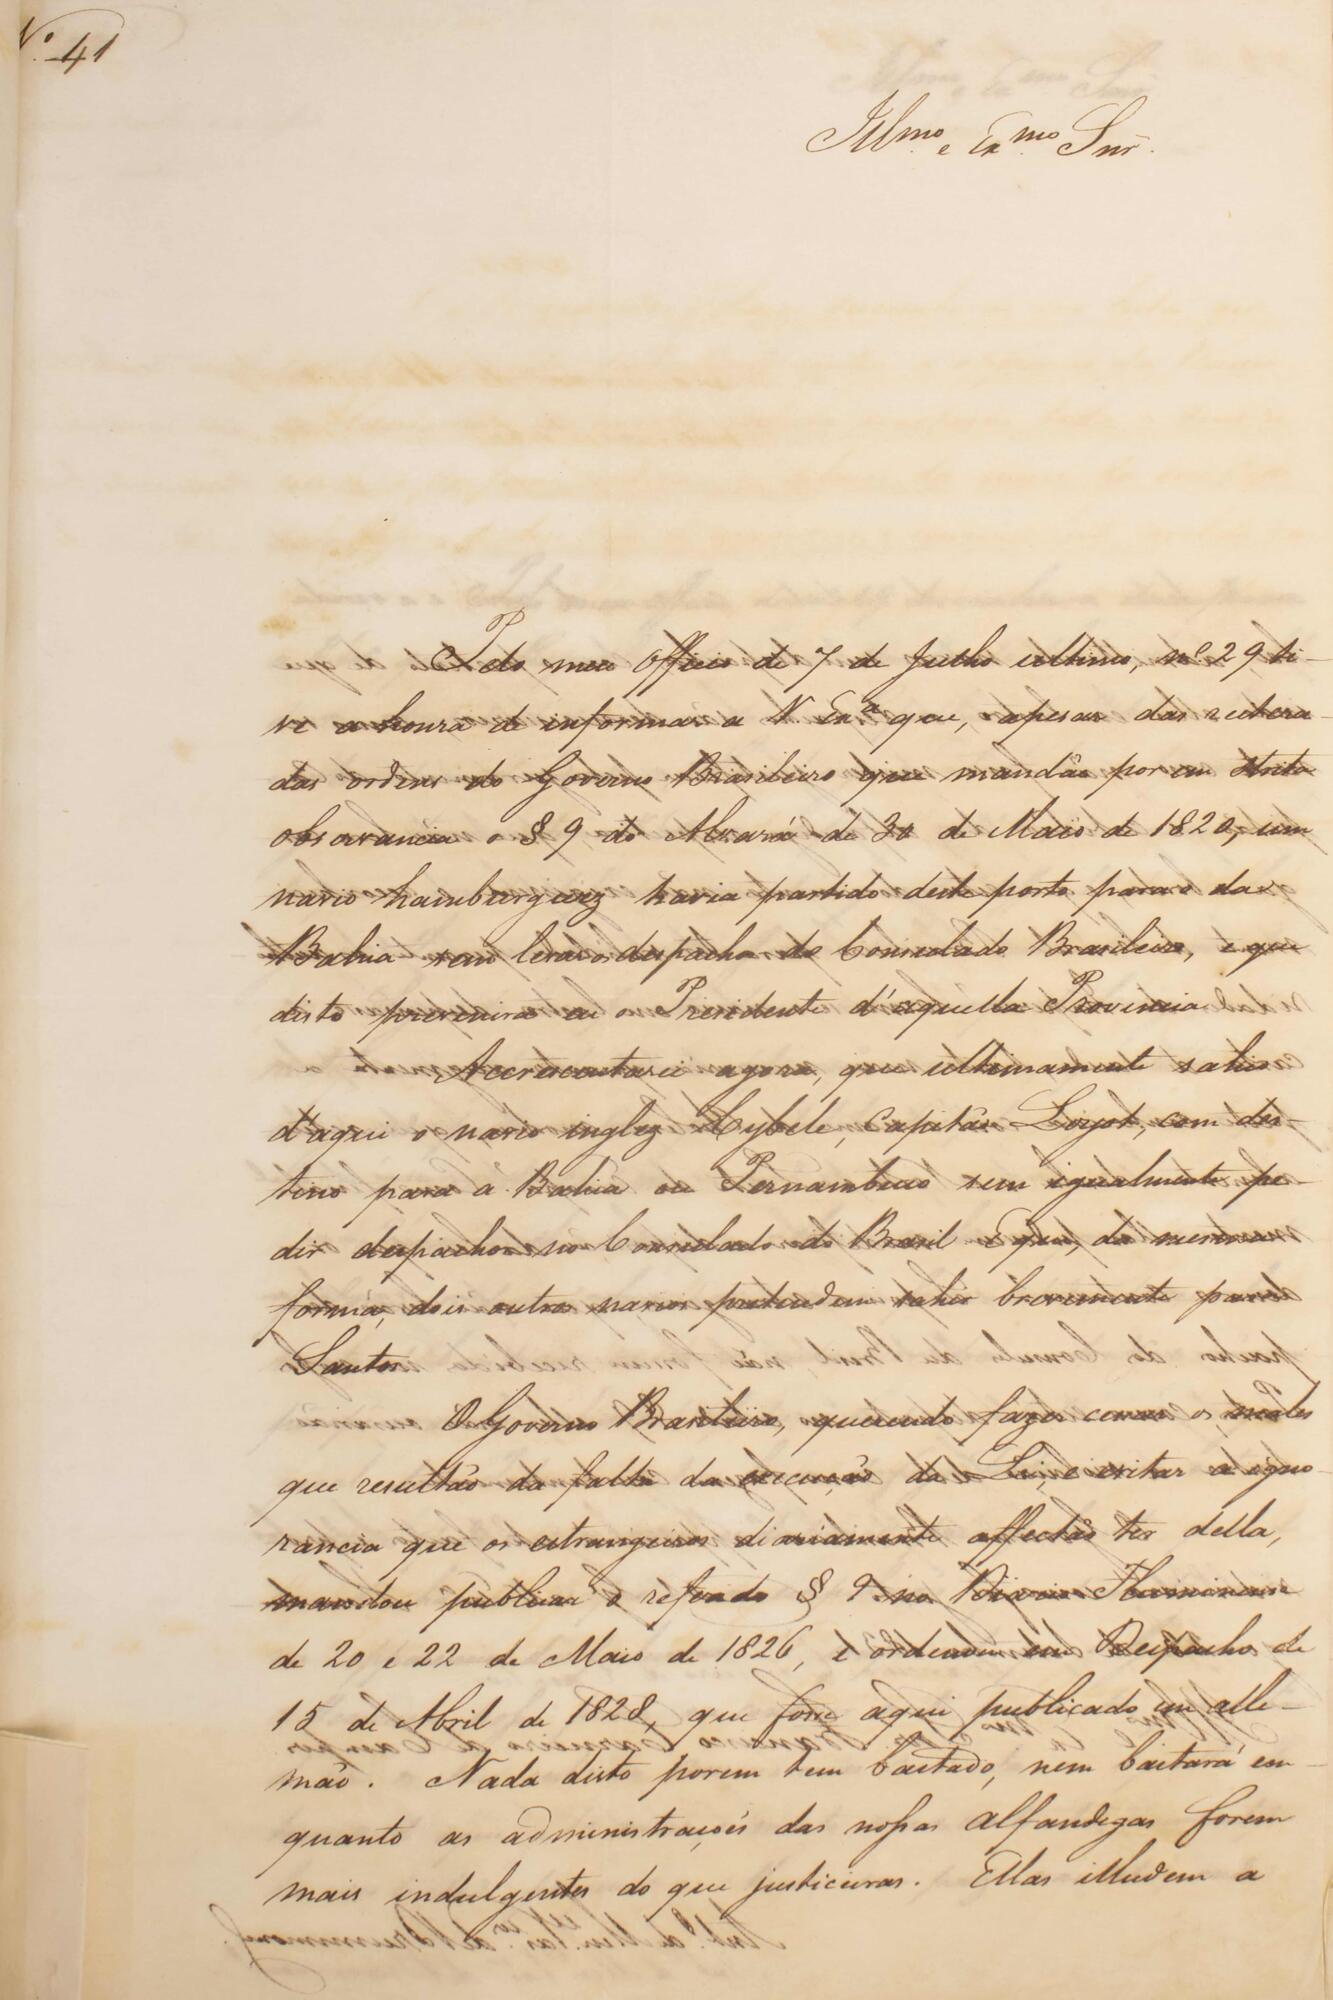 Nº 41
Illmo. e Exmo. Snr.
Pelo meu Officio de 7 de Julho ultimo, nº 29 ti-
ve a honra de informar a V. Exª que, apesar das reitera-
das ordens do Governo Brasileiro que mandão por em stricta
observancia o § 9 do Alvará de 30 de Maio de 1820, um
navio hamburguez havia partido deste porto para o da
Bahia sem levar os despachos do Consulado Brasileiro, e que
disto prevenira eu o Presidente d'aquella Provincia.
Accrescentarei agora, que ultimamente sahio
d'aqui o navio inglez Cybele, Capitão Loyot, com des-
tino para a Bahia ou Pernambuco sem igualmente pe-
dir despachos no Consulado do Brasil E que, da mesma
forma, dois outros navios pretendem sahir brevemente para
Santos
O Governo Brasileiro, querendo fazer cessar os males
que resultão da falta da execução da Lei, e evitar a igno-
rancia que os estrangeiros diariamente affectão ter della,
mandou publicar o referido § 9 no Diario Fluminense
de 20 e 22 de Maio de 1826, e ordenou em Despacho de
15 de Abril de 1828, que fosse aqui publicado em alle-
mão. Nada disto porem tem bastado, nem bastará em-
quanto as administrações das nossas alfandegas forem
mais indulgentes do que justiceiras. Ellas illudem a